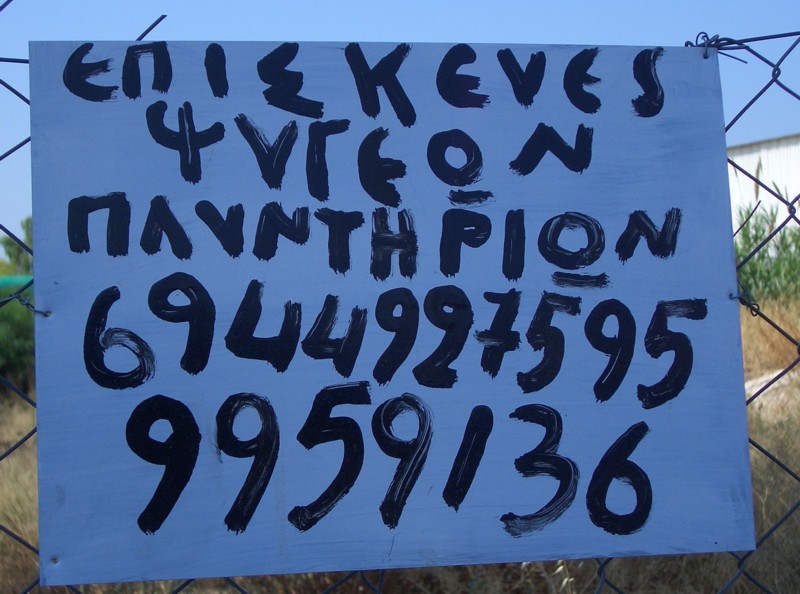 ΕΠΙΣΚΕΥΕΣ
ΨΥΓΕΩΝ
ΠΛΥΝΤΗΡΙΩΝ
6944927595
9959136